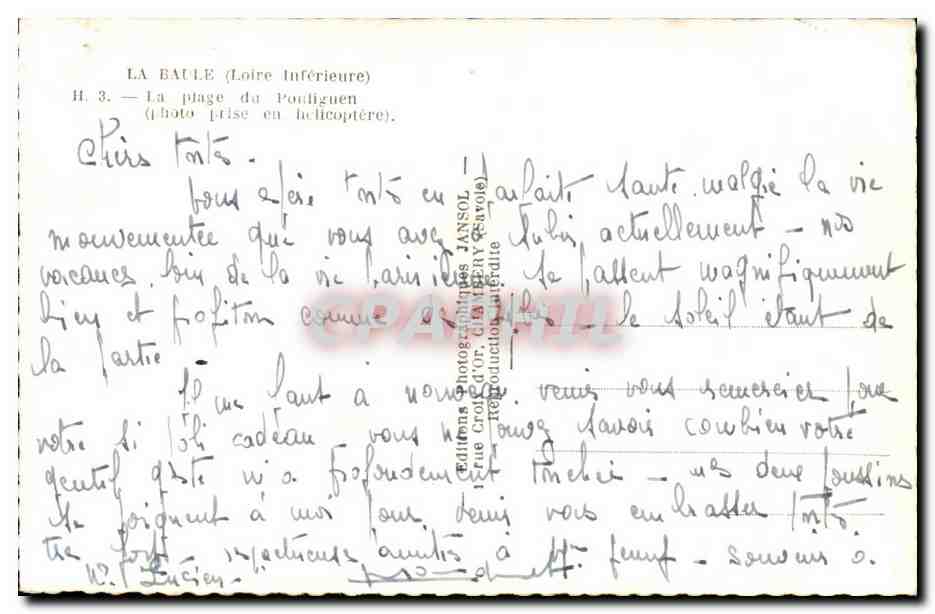 LA BAULE (Loire Inférieure)
H. 3. — La plage du Pouliguen
(photo prise en hélicoptère).
Chers
vous en parfaite santé, malgré la vie
mouvementée que vous avez actuellement -
vacances, loin de la vie parisienne se passent magnifiquement
bien et profitons comme - le soleil étant de
la partie -
Il me faut à nouveau, venir vous remercier pour
votre si joli cadeau - vous ne savoir combien votre
gentil geste m'a profondément touchée - mes deux poussins
se joignent à moi pour venir vous embrasser
très fort - respectueuses amitiés à - souvenir à
Lucien -
Editions Photographiques JANSOL —
rue Croix d'Or, CHAMBÉRY (Savoie)
Reproduction interdite
CPARAMA